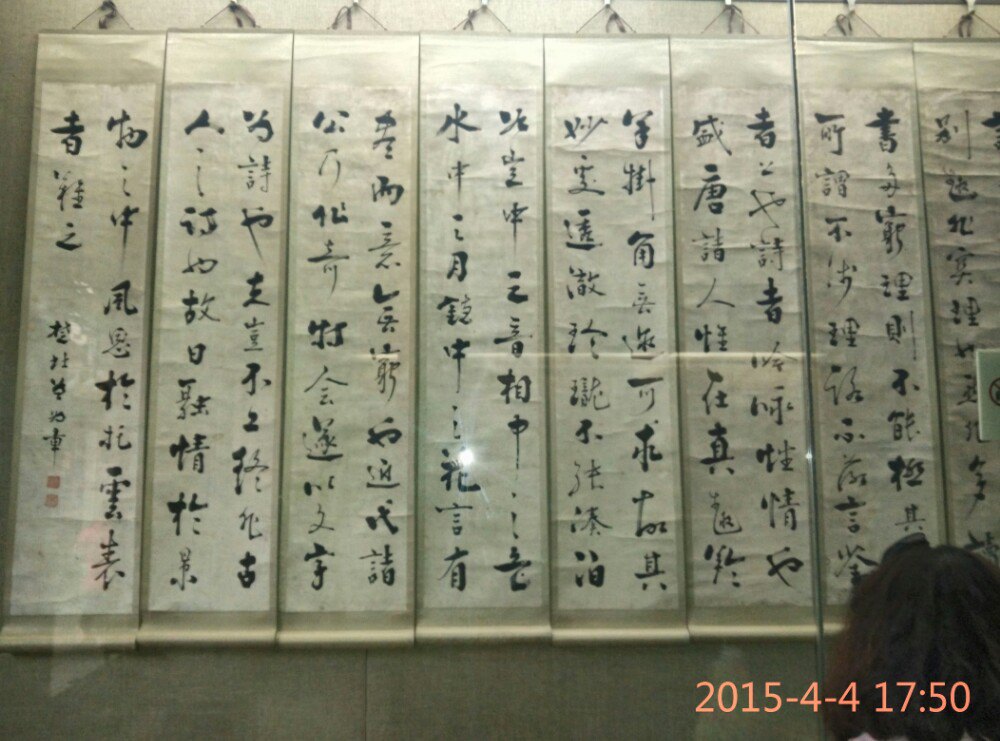 別趣非理也然非多
書多窮理則不能極其
所謂不涉理路不落言筌
者上也詩者吟咏性情也
盛唐諸人惟在真趣羚
羊掛角無迹可求故其
妙處透澈玲瓏不湊泊
空中之音相中之色
水中之月鏡中之花言有
盡而意無窮也近代諸
公乃作奇特会遂以文字
为詩也夫豈不工終非古
人之詩也故曰融情於景
物之中風思於托雲表
者難之
2015-4-4 17:50